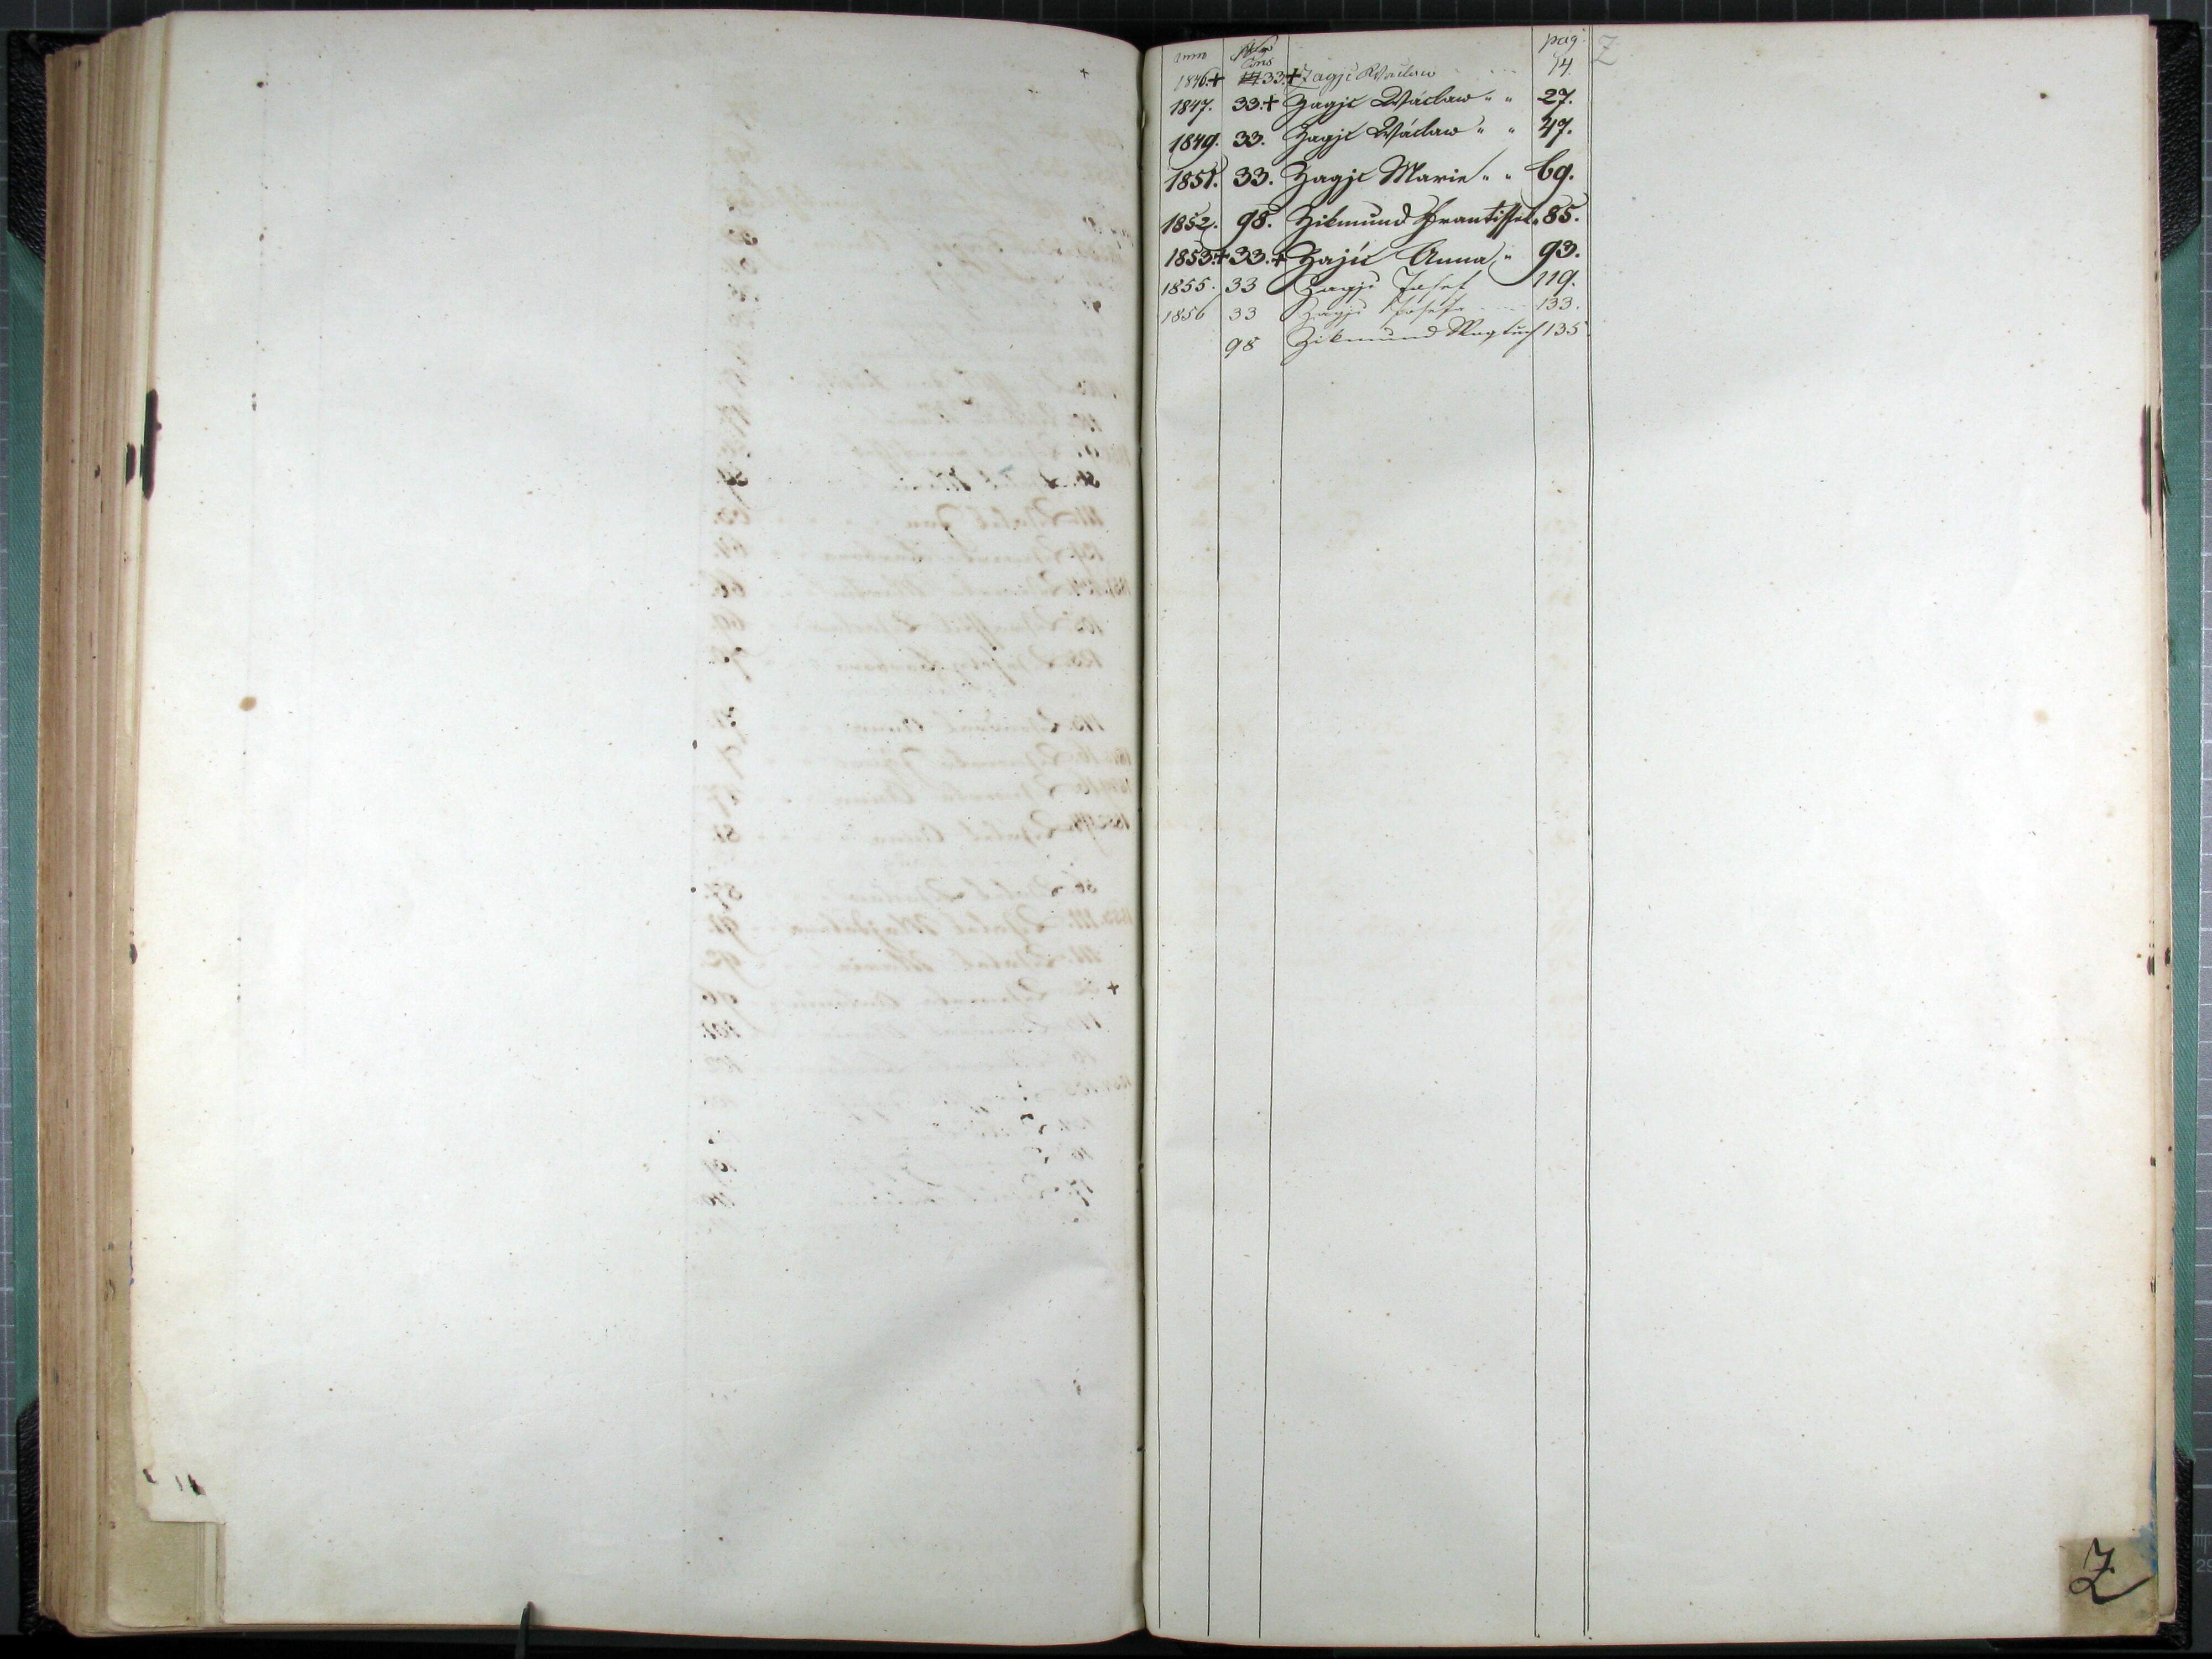 anno Nro Cons pag: Z
1846.+ 33.+ Zagjc Wáclaw 14.
1847. 33.+ Zagjc Wáclaw " " 27.
1849. 33. Zagjc Wáclaw " " 47.
1851. 33. Zagjc Marie " " 69.
1852. 98. Zikmund Frantissek " 85.
1853.+ 33.+ Zajíc Anna " 93.
1855. 33 Zagjc Josef 119.
1856 33 Zagjc Josefa 133.
98 Zikmund 135
Z